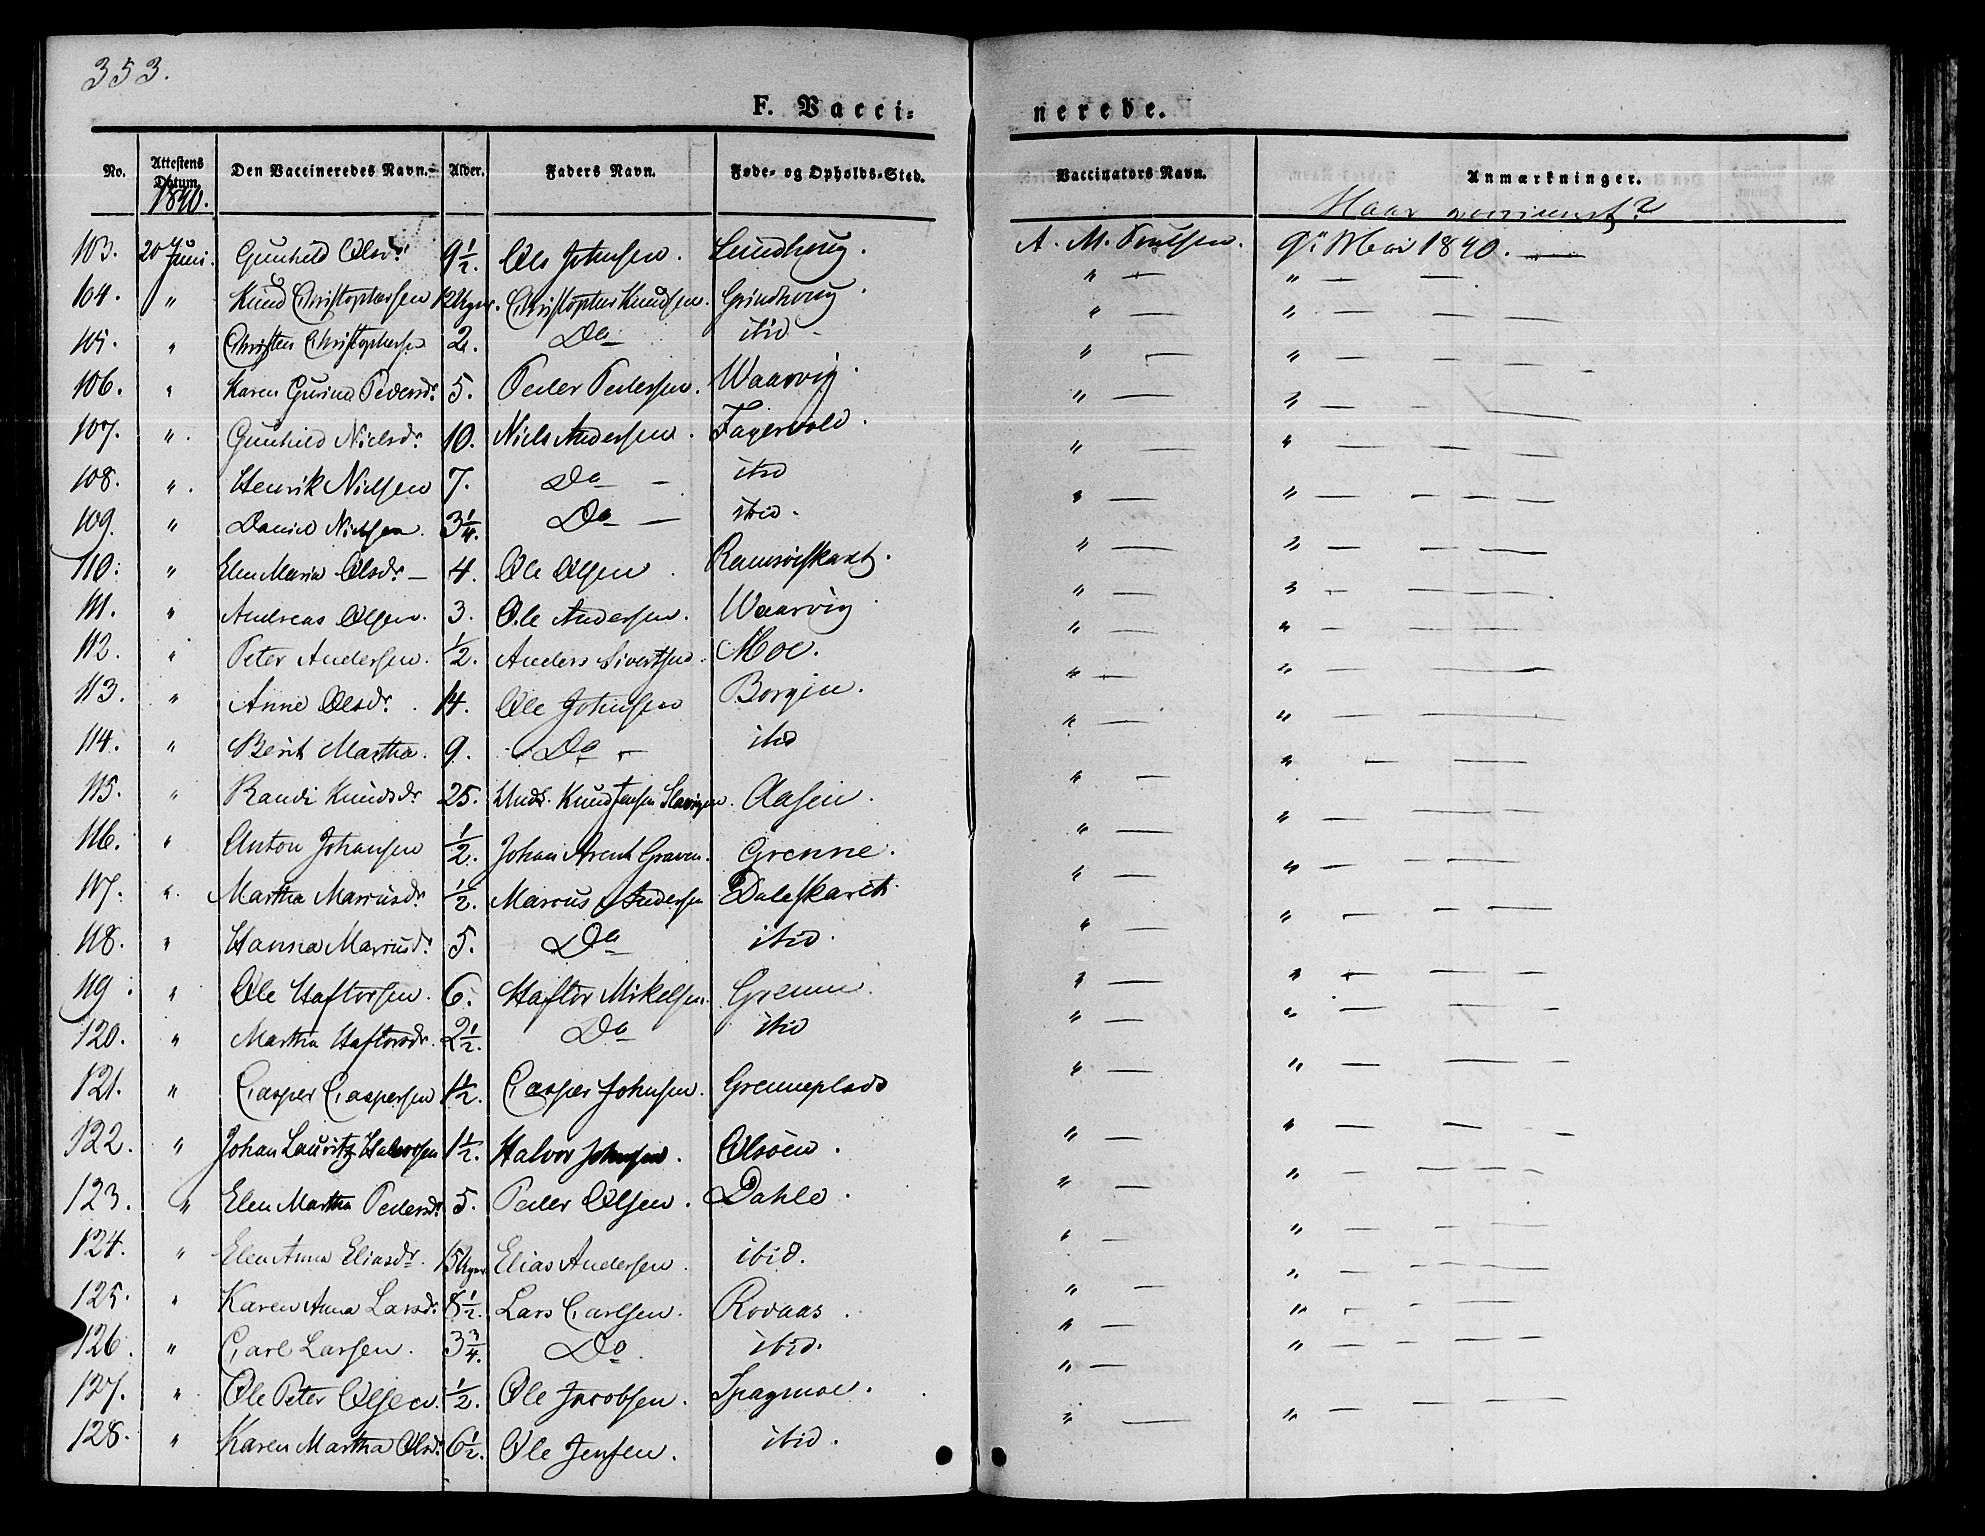 353.
F. Vacci-
nerede.
No. Attestens Datum. Den Vaccineredes Navn. Alder. Faders Navn. Føde- og Opholds-Sted. Vaccinators Navn. Anmærkninger.
1840. Naar vaccineret?
103. 20 Juni. Gunhild Olsdr. 9 1/2. Ols Johnsen. Lundhoug. A. M. 9de Mai 1840. —
104. " Knud Christophersen 12 Uger. Christopher Knudsen. Grindhoug. " — " — — —
105. " Christen Christophersen 2. Do ibid — " — " — — —
106. " Karen Gurine Pedersdr. 5. Peder Pedersen. Waarvig. " — " — — —
107. ". Gunhild Nielsdr. 10. Niels Andersen. Fagervold. " — " — — —
108. ". Henrik Nielsen 7. Do — ibid " — " — — —
109. " Daniel Nielsen. 3 1/4. Do — ibid. " — " — — —
110. " Elen Maria Olsdr. — 4. Ole Olsen. " — " — — —
111. " Andreas Olsen. 3. Ole Andersen. Waarvig " — " — — —
112. " Peter Andersen. 1/2. Anders Sivertsen. Moe. " — " — — —
113. " Anne Olsdr. 14. Ole Johnsen Borgen. " — " — — —
114. " Berit Martha. 9. Do — ibid " — " — — —
115. " Randi Knudsdr. 25. Knud Jensen Aasen. " — " — — —
116. " Anton Johansen 1/2. Johan Arent Graven. Grenne. " — " — — —
117. ". Martha Marcusdr. 1/2. Marcus Andersen Daleskaret. " — " — — —
118. " Hanna Marcusdr. 5. Do ibid. " — " — — —
119. " Ole Haftorsen. 6. Haftor Mikelsen. Grenne. " — " — — —
120. " Martha Haftorsdr. 2 1/2. Do ibid " — " — — —
121. " Casper Caspersen 1 1/2. Casper Johnsen. Grenneplads " — " — — —
122. " Johan Lauritz Halvorsen 1 1/2. Halvor Johnsen. Olsøen. " — " — — —
123. " Elen Martha Pedersdr. 5. Peder Olsen. Dahle. " — " — — —
124. " Elen Anna Eliasdr. 15 Uger. Elias Andersen. ibid. " — " — — —
125. " Karen Anna Larsdr. 8 1/2. Lars Carlsen. Rovaas. " — " — — —
126. " Carl Larsen. 3 3/4. Do. ibid. " — " — — —
127. " Ole Peter Olsen. 1/2. Ole Jacobsen. Spagmoe. " — " — — —
128. " Karen Martha Olsdr. 6 1/2. Ole Jensen. ibid. " — " — — —